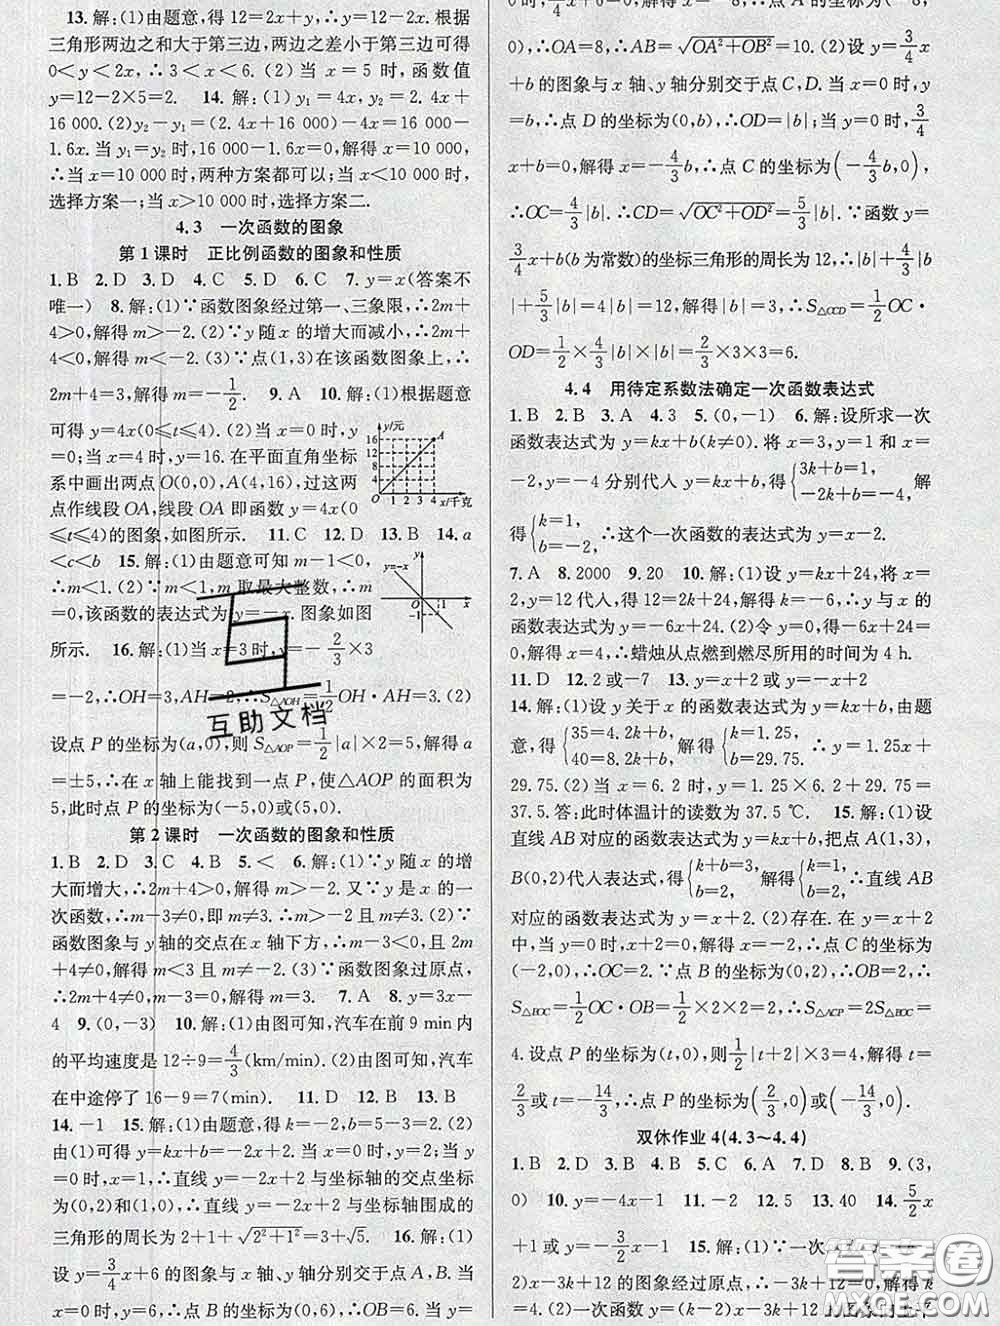 13. 解:(1)由题意,得 12=2x+y,∴y=12-2x. 根据
三角形两边之和大于第三边,两边之差小于第三边可得
0<y<2x,∴3<x<6. (2)当 x=5 时,函数值
y=12-2×5=2. 14. 解:(1)y₁=4x,y₂=2.4x+
16 000. (2)y₂-y₁=(2.4x+16 000)-4x=16 000-
1.6x. 当 y₁=y₂ 时,16 000-1.6x=0,解得 x=10 000,
∴当 x=10 000 时,两种方案都可以;当 x<10 000 时,
选择方案一;当 x>10 000 时,选择方案二.
4.3 一次函数的图象
第 1 课时 正比例函数的图象和性质
1. B 2. D 3. D 4. C 5. D 6. C 7. y=x(答案不
唯一) 8. 解:(1)∵函数图象经过第一、三象限,∴2m+
4>0,解得 m>-2. (2)∵y 随 x 的增大而减小,∴2m+
4<0,解得 m<-2. (3)∵点(1,3)在该函数图象上,∴
2m+4=3,解得 m=-1/2. 9. A 10. 解:(1)根据题意
可得 y=4x(0≤x≤4). (2)当 x=0 时,
y=0;当 x=4 时,y=16. 在平面直角坐标
系中画出两点 O(0,0),A(4,16),过这两
点作线段 OA,线段 OA 即函数 y=4x(0
≤x≤4)的图象,如图所示. 11. C 12. D 13. B 14. a
y/元
16
12
8
4
A
O 1 2 3 4
x/千克
<c<b 15. 解:(1)由题意可知 m-1<0,
∴m<1. (2)∵m<1,m 取最大整数,∴m
=0,该函数的表达式为 y=-x. 图象如图
所示. 16. 解:(1)当 x=3 时,y=-2/3×3
y=-x
y
O 1 x
-1
=-2,∴OH=3,AH=2,∴S△AOH=1/2OH·AH=3. (2)
设点 P 的坐标为(a,0),则 S△AOP=1/2|a|×2=5,解得 a
=±5,∴在 x 轴上能找到一点 P,使△AOP 的面积为
5,此时点 P 的坐标为(-5,0)或(5,0).
第 2 课时 一次函数的图象和性质
1. B 2. D 3. C 4. B 5. < 6. 解:(1)∵y 随 x 的增
大而增大,∴2m+4>0,解得 m>-2. 又∵y 是 x 的一
次函数,∴m-3≠0,即 m≠3. ∴m>-2 且 m≠3 (2)∵
函数图象与 y 轴的交点在 x 轴下方,∴m-3<0 且 2m
+4≠0,解得 m<3 且 m≠-2. (3)∵函数图象过原点,
∴2m+4≠0,m-3=0,解得 m=3. 7. A 8. y=3x-
4 9. (0,-3) 10. 解:(1)由图可知,汽车在前 9 min 内
的平均速度是 12÷9=4/3(km/min). (2)由图可知,汽车
在中途停了 16-9=7(min). 11. D 12. B 13. B
14. -1 15. 解:(1)由题意,得 k=-2,∴当 x=1 时,
y=kx+b=-2+b=2k-5... (2)
∴直线 y=-2x+2 与坐标轴的交点坐标为
(0,2)和(1,0),∴直线 y=-2x+2 与坐标轴围成的
三角形的周长为 2+1+√2²+1²=3+√5. 16. 解:(1)
设 y=3/4x+6 的图象与 x 轴、y 轴分别交于点 A,B. 当
x=0 时,y=6,∴点 B 的坐标为(0,6),∴OB=6. 当 y=
0),∴OA=8,∴AB=√OA²+OB²=10. (2)设 y=3/4x
+b 的图象与 x 轴、y 轴分别交于点 C,D. 当 x=0 时,
y=b,∴点 D 的坐标为(0,b),∴OD=|b|;当 y=0 时,3/4
x+b=0,解得 x=-4/3b,∴点 C 的坐标为(-4/3b,0),
∴OC=4/3|b|. ∴CD=√OC²+OD²=5/3|b|. ∵函数 y=
3/4x+b(b 为常数)的坐标三角形的周长为 12,∴|b|+4/3|b|
+5/3|b|=4|b|=12,解得|b|=3,∴S△OCD=1/2OC·
OD=1/2×4/3|b|×|b|=2/3×3×3=6.
4.4 用待定系数法确定一次函数表达式
1. B 2. B 3. A 4. 3 5. (0,-1) 6. 解:设所求一次
函数表达式为 y=kx+b(k≠0). 将 x=3,y=1 和 x=
-2,y=-4 分别代入 y=kx+b,得{3k+b=1,-2k+b=-4,解
得{k=1,b=-2,∴这个一次函数的表达式为 y=x-2.
7. A 8. 2000 9. 20 10. 解:(1)设 y=kx+24,将 x=
2,y=12 代入,得 12=2k+24,解得 k=-6,∴y 与 x 的
函数表达式为 y=-6x+24. (2)令 y=0,得-6x+24=
0,解得 x=4,∴蜡烛从点燃到燃尽所用的时间为 4 h.
11. D 12. 2 或-7 13. y=x+2 或 y=-x+2
14. 解:(1)设 y 关于 x 的函数表达式为 y=kx+b,由题
意,得{35=4.2k+b,40=8.2k+b,解得{k=1.25,b=29.75,∴y=1.25x+
29.75. (2)当 x=6.2 时,y=1.25×6.2+29.75=
37.5. 答:此时体温计的读数为 37.5 ℃. 15. 解:(1)设
直线 AB 对应的函数表达式为 y=kx+b,把点 A(1,3),
B(0,2)代入表达式,得{k+b=3,b=2,解得{k=1,b=2,∴直线 AB
对应的函数表达式为 y=x+2. (2)存在. 在 y=x+2
中,当 y=0 时,x+2=0,解得 x=-2,∴点 C 的坐标为
(-2,0),∴OC=2. ∵点 B 的坐标为(0,2),∴OB=2,∴
S△BOC=1/2OC·OB=1/2×2×2=2,∴S△ACP=2S△BOC=
4. 设点 P 的坐标为(t,0),则1/2|t+2|×3=4,解得 t=
2/3或 t=-14/3,∴点 P 的坐标为(2/3,0)或(-14/3,0).
双休作业 4(4.3～4.4)
1. B 2. D 3. A 4. B 5. C 6. A 7. D 8. B 9. (3,
0) 10. y=-4x-1 11. -2 12. 5 13. 40 14. 5/2x
+1或 y=-3/2x-1 15. 解:(1)∵一次
x-3k+12 的图象经过原点,∴-3k+12=0,解得 k
=4. (2)一次函数 y=(2-k)x-3k+12
互助文档
答案圈
MXQE.COM